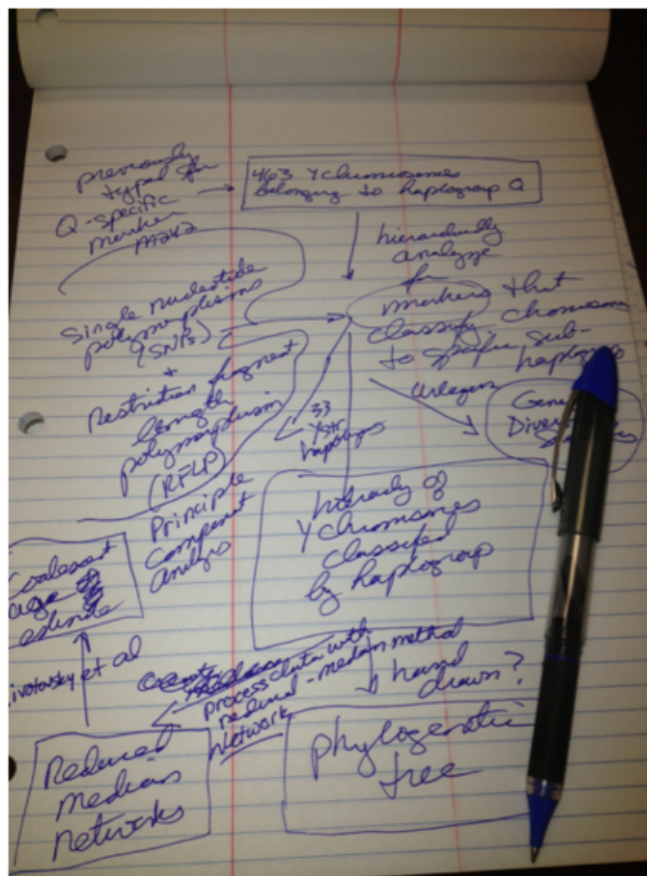 previously
typed for
Q-specific
marker
M242
463 Y chromosomes
belonging to haplogroup Q
hierarchically
analyze
for
markers that
classify chromosomes
to specific sub-
haplogroups
Single nucleotide
polymorphisms
(SNPs)
+
Restriction fragment
length
polymorphism
(RFLP)
33
Ystr
haplotypes
Arlequin
Gene
Principle
component
analysis
hierarchy of
Y chromosomes
classified
by haplogroup
Coalescent
age
estimate
ivotovsky et al
process data with
reduced-median method
Network
hand
drawn?
Reduced
median
networks
phylogenetic
tree